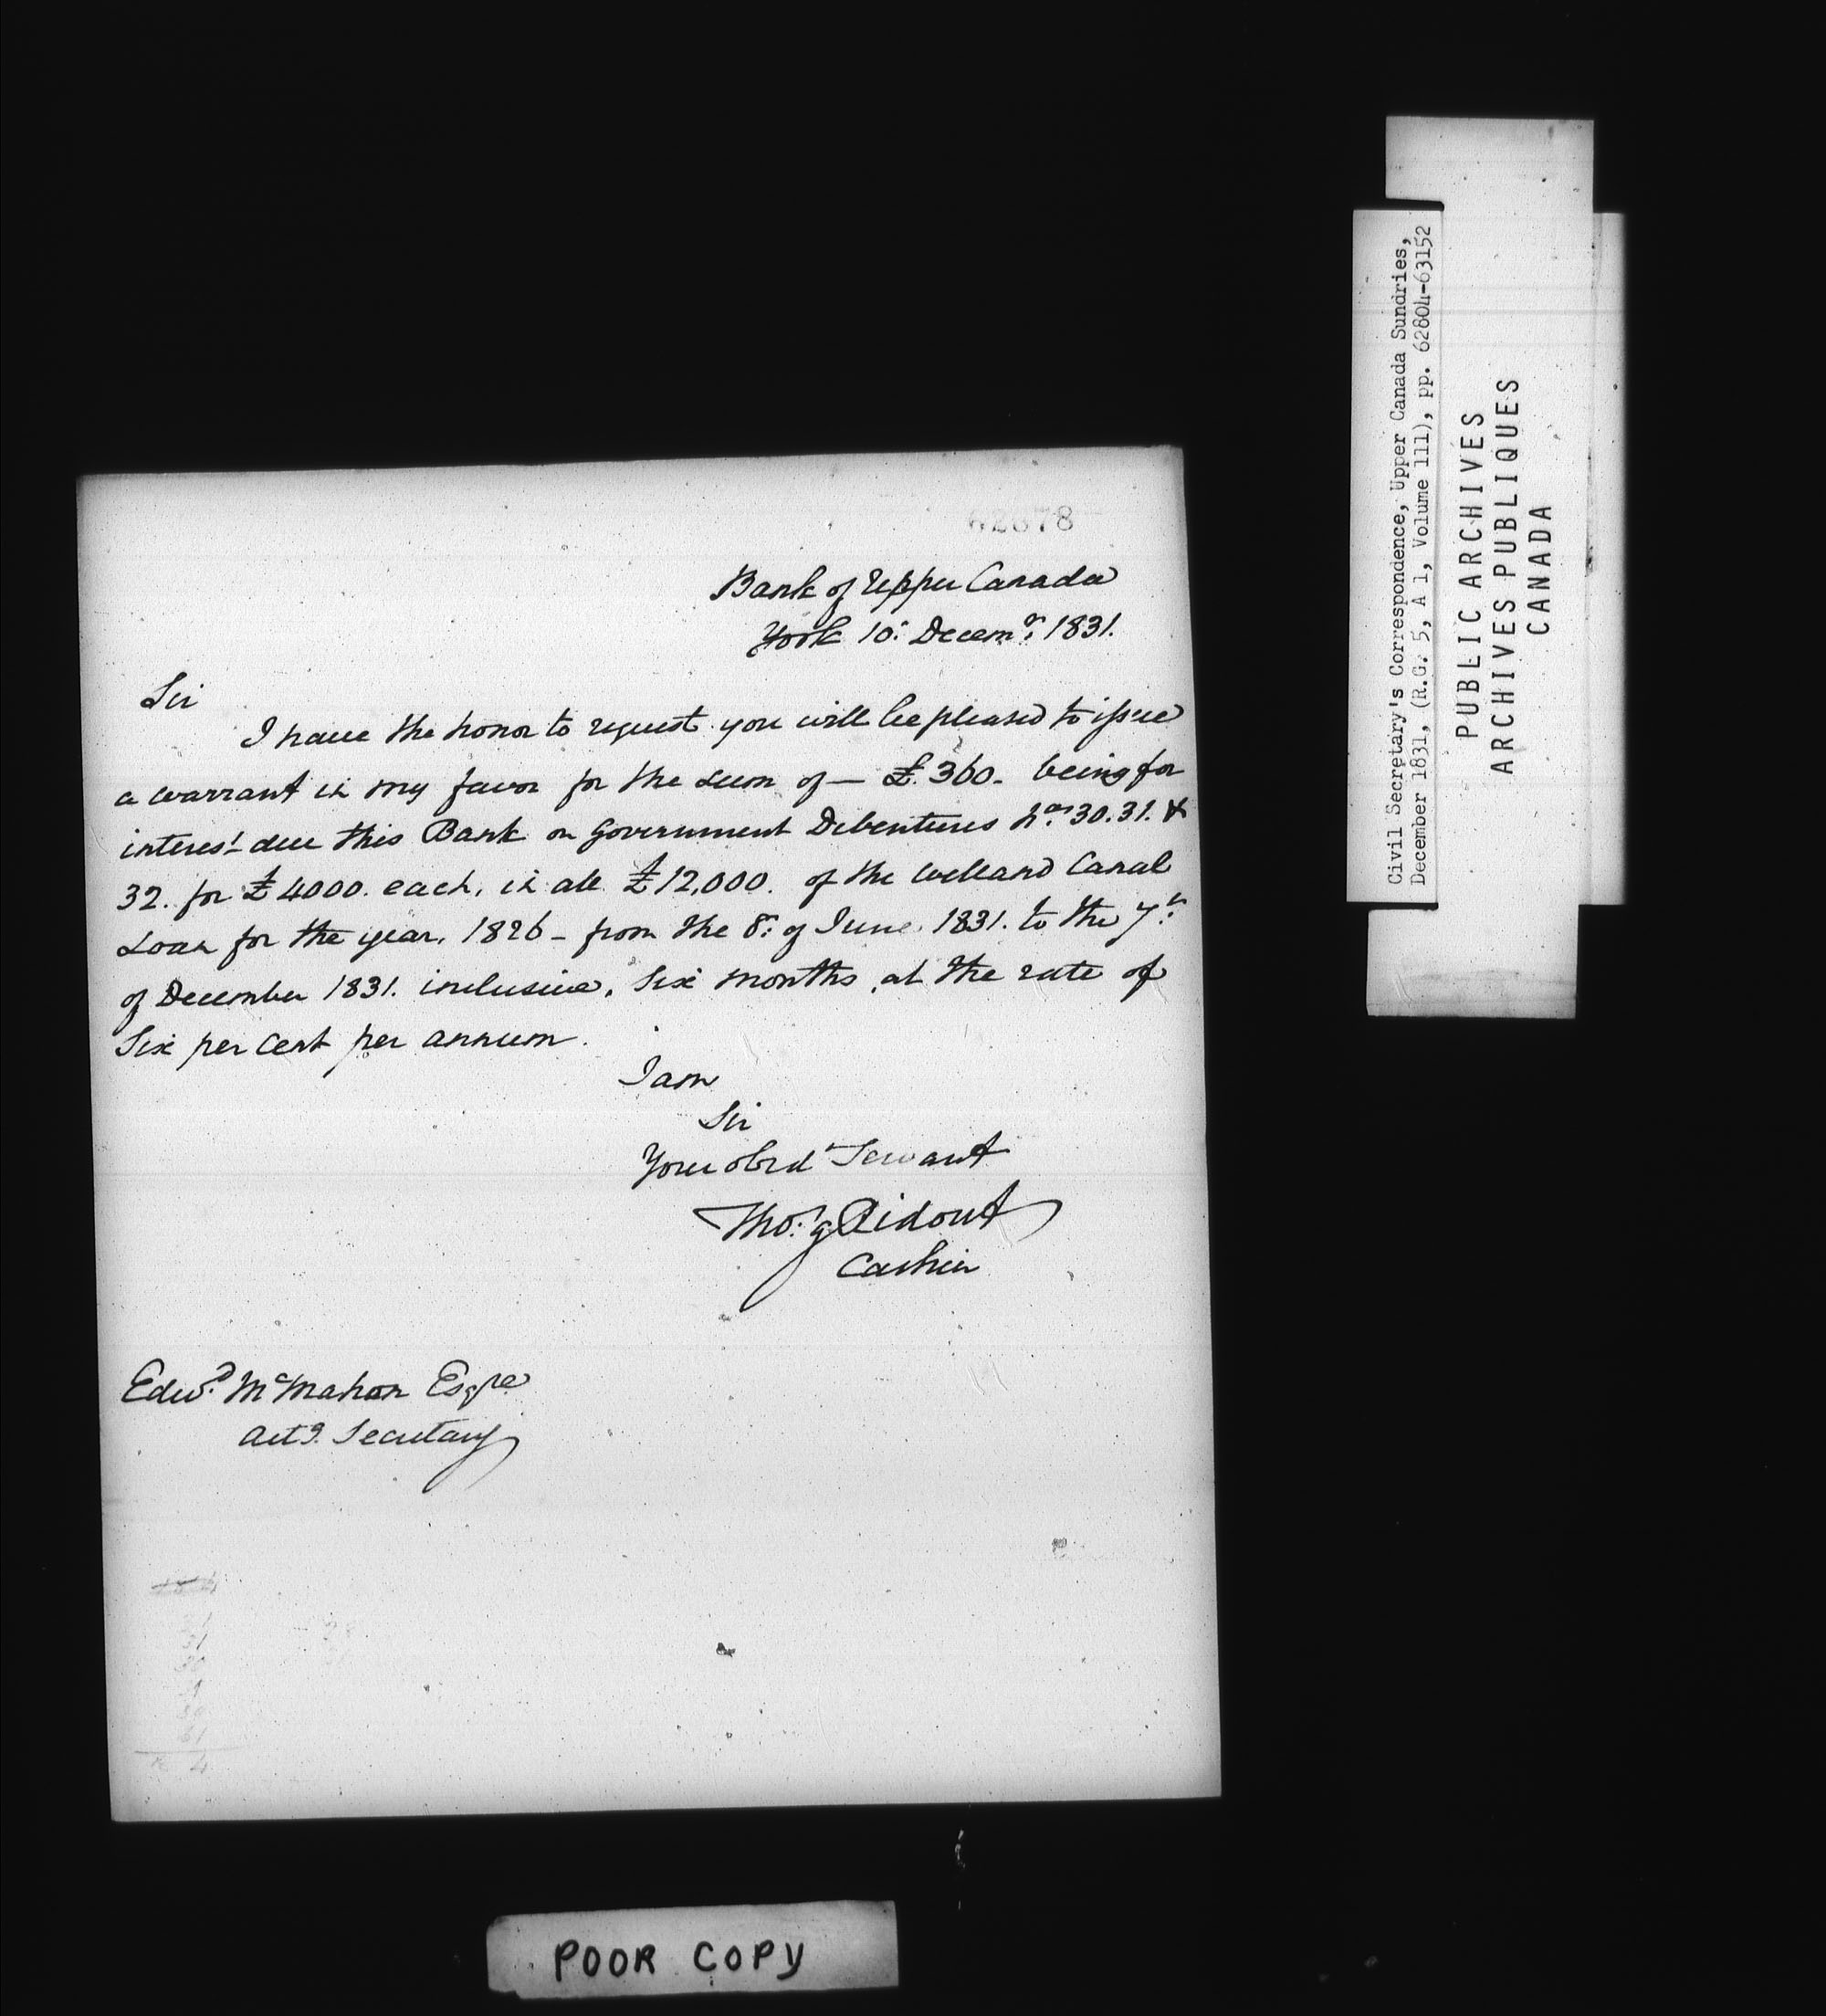 62878
Bank of Upper Canada
York 10: Decem.r 1831.
Sir
I have the honor to request you will be pleased to issue
a warrant in my favor for the sum of — £.360- being for
interest due this Bank on Government Debentures No.s 30.31. &
32. for £4000. each, in all £12,000. of the Welland Canal
Loan for the year, 1826 - from the 8: of June 1831. to the 7th.
of December 1831. inclusive, Six months, at the rate of
Six per Cent per annum.
I am
Sir
Your obed.t Servant
Tho.s G Ridout
Cashier
Edw.d McMahon Esqre
Act.g Secretary
Civil Secretary's Correspondence, Upper Canada Sundries,
December 1831, (R.G. 5, A 1, Volume 111), pp. 62804-63152
PUBLIC ARCHIVES
ARCHIVES PUBLIQUES
CANADA
POOR COPY